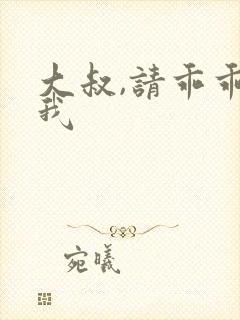 大叔,請乖乖
我
宛曦